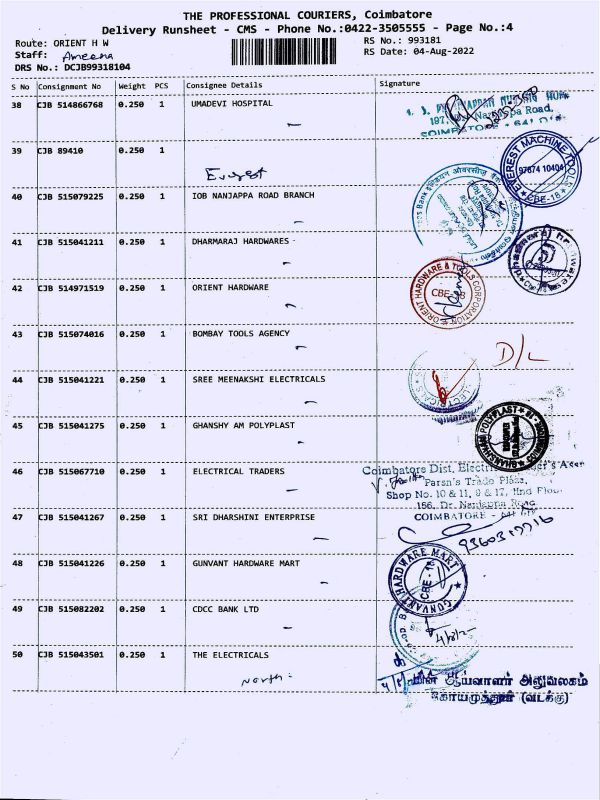 THE PROFESSIONAL COURIERS, Coimbatore
Delivery Runsheet - CMS - Phone No.:0422-3505555 - Page No.:4
Route: ORIENT H W
RS No.: 993181
Staff: Ameena
RS Date: 04-Aug-2022
DRS No.: DCJB99318104
S No Consignment No Weight PCS Consignee Details Signature
38 CJB 514866768 0.250 1 UMADEVI HOSPITAL
Nanjappa Road,
39 CJB 89410 0.250 1
Everest
EVEREST MACHINE TOOLS
97874 10404
CBE-18
40 CJB 515079225 0.250 1 IOB NANJAPPA ROAD BRANCH
41 CJB 515041211 0.250 1 DHARMARAJ HARDWARES
42 CJB 514971519 0.250 1 ORIENT HARDWARE
ORIENT HARDWARE & TOOLS CORPORATION
43 CJB 515074016 0.250 1 BOMBAY TOOLS AGENCY
D/L
44 CJB 515041221 0.250 1 SREE MEENAKSHI ELECTRICALS
45 CJB 515041275 0.250 1 GHANSHY AM POLYPLAST
46 CJB 515067710 0.250 1 ELECTRICAL TRADERS
Coimbatore Dist.
Parsn's Trade Plaza,
Shop No. 10 & 11, 9 & 17, IInd Floor
156, Dr. Nanjappa Road,
COIMBATORE
47 CJB 515041267 0.250 1 SRI DHARSHINI ENTERPRISE
9360319916
48 CJB 515041226 0.250 1 GUNVANT HARDWARE MART
GUNVANT HARDWARE MART
CBE-18
49 CJB 515082202 0.250 1 CDCC BANK LTD
50 CJB 515043501 0.250 1 THE ELECTRICALS
North
மின் ஆய்வாளர் அலுவலகம்
கோயமுத்தூர் (வடக்கு)